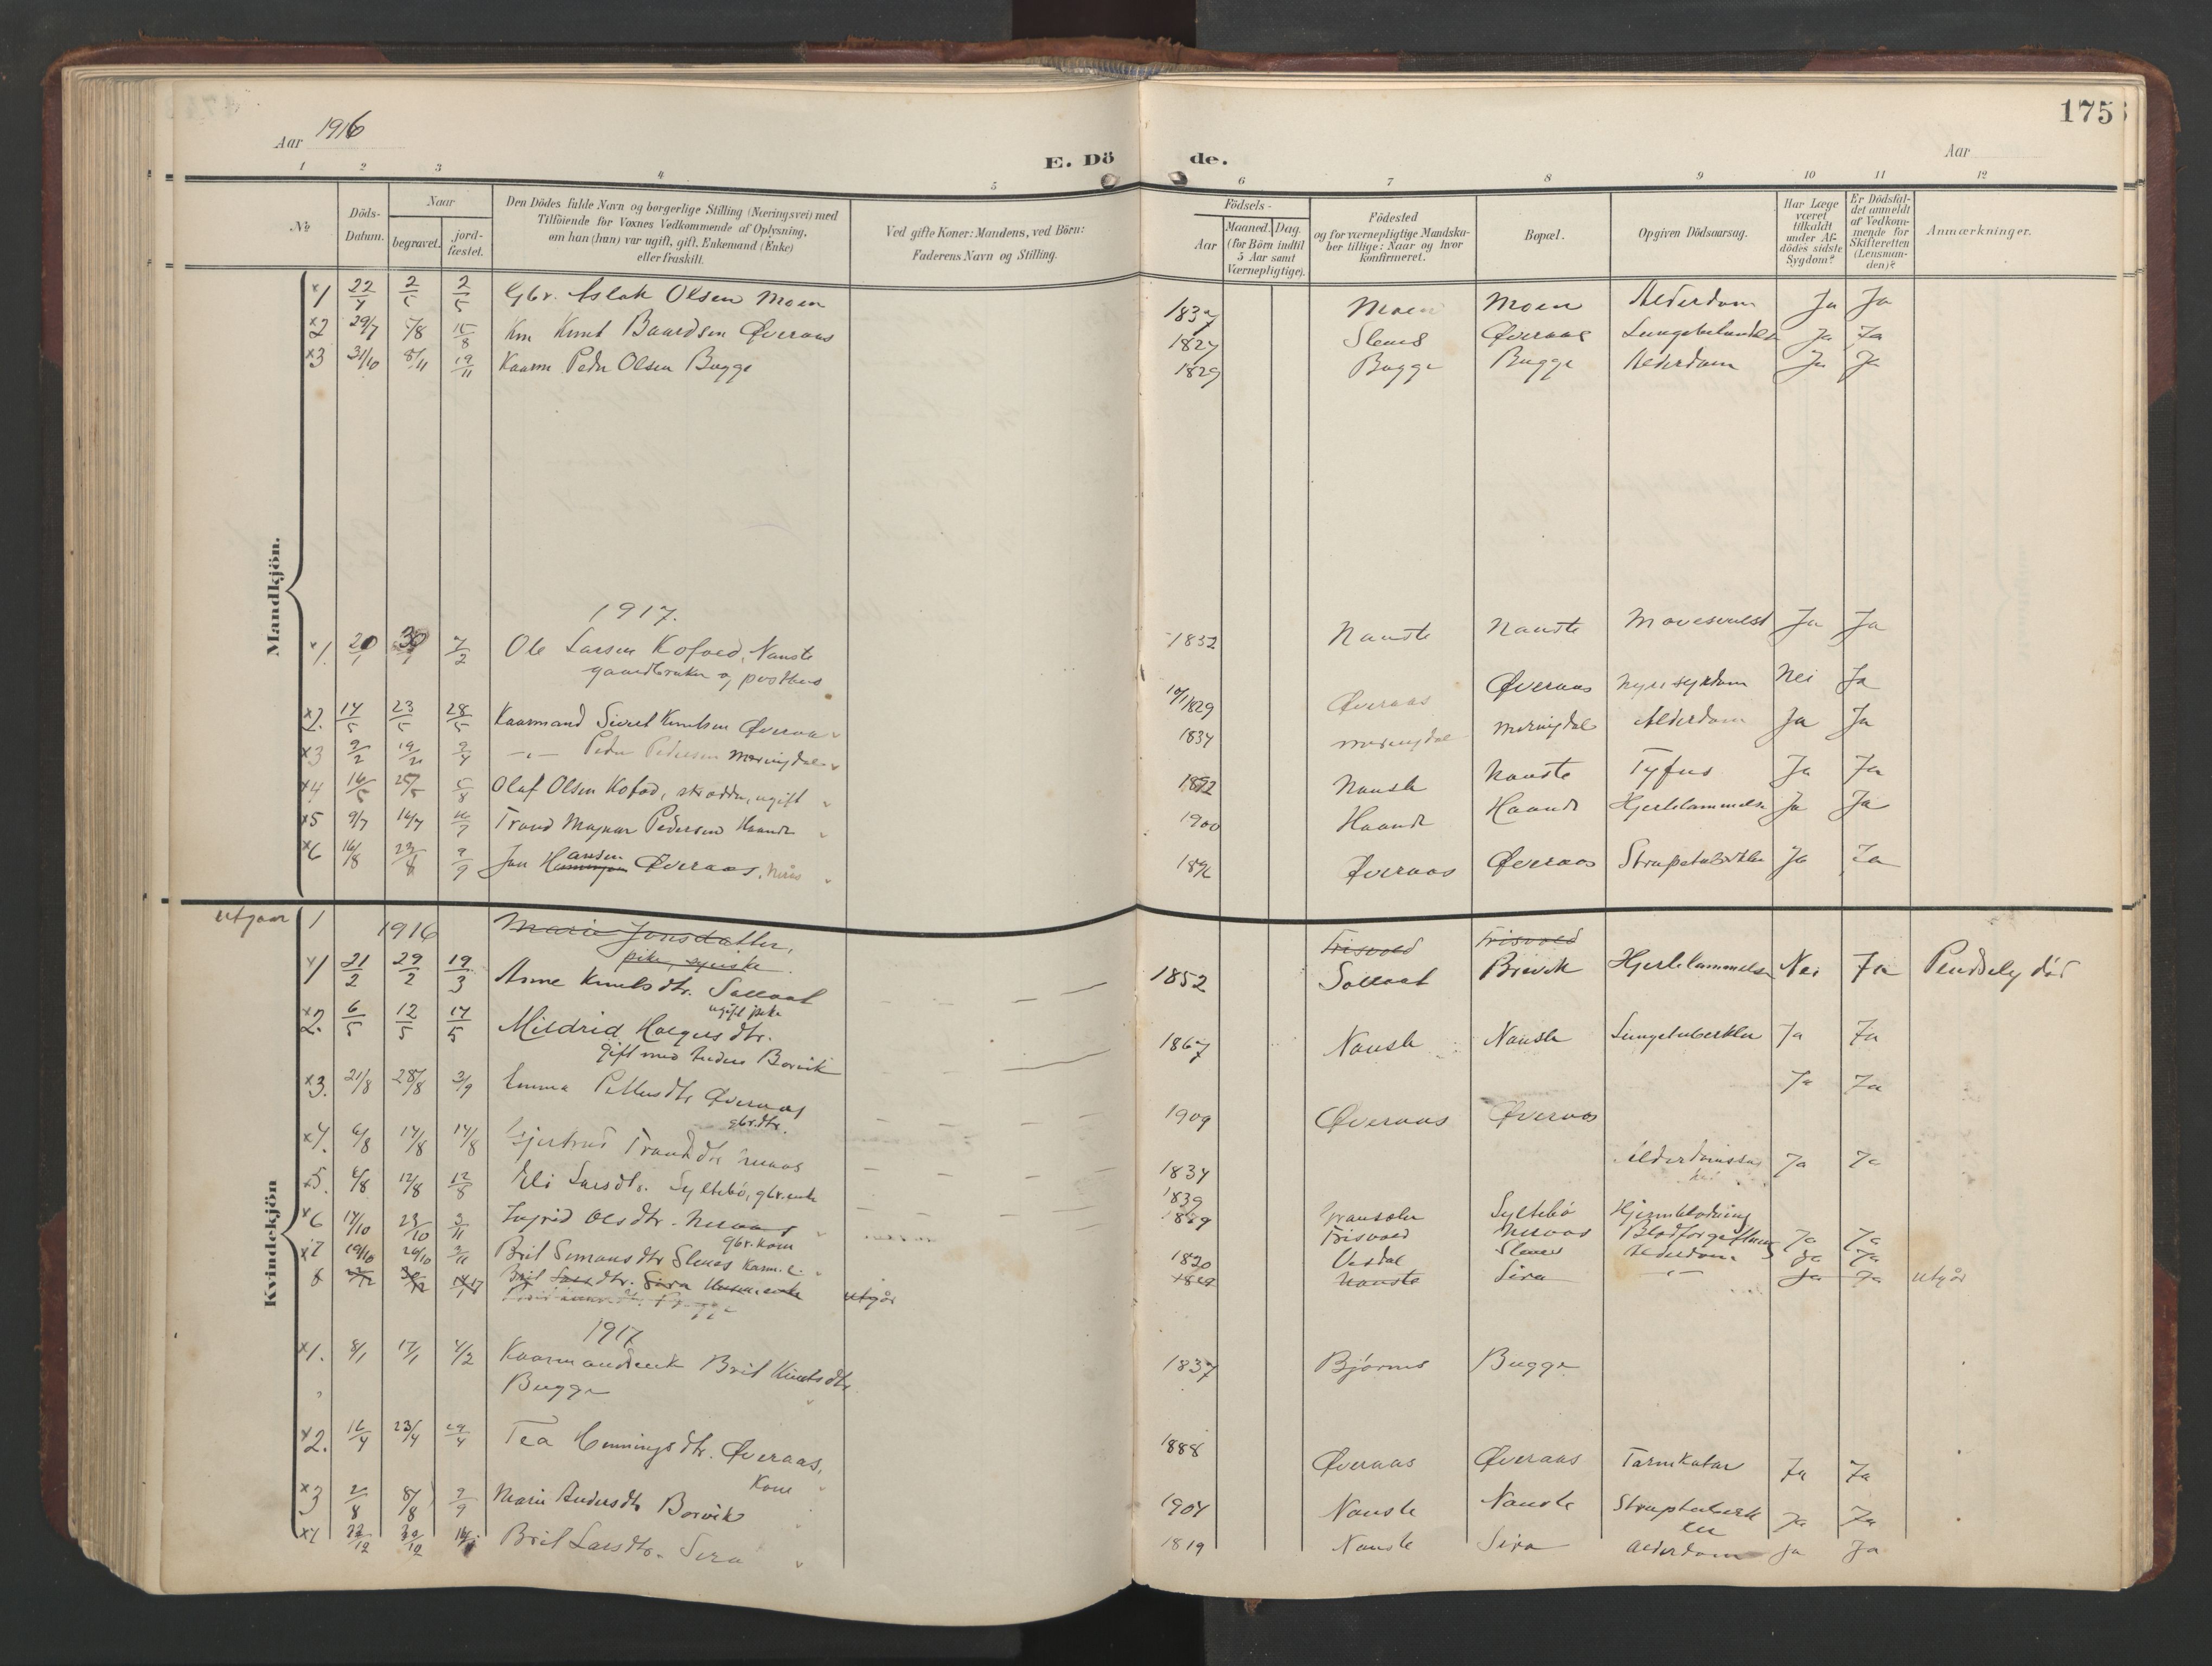 175
Aar 1916
E. Döde.
Aar
1 2 3 4 5 6 7 8 9 10 11 12
No
Döds-Datum.
Naar
begravet.
jord-fæstet.
Den Dödes fulde Navn og borgerlige Stilling (Næringsvei) med
Tilföiende for Voxnes Vedkommende af Oplysning,
om han (hun) var ugift, gift, Enkemand (Enke)
eller fraskilt.
Ved gifte Koner: Mandens, ved Börn:
Faderens Navn og Stilling.
Födsels-
Aar
Maaned. Dag.
(for Börn indtil
5 Aar samt
Værnepligtige).
Födested
og for værnepligtige Mandska-
ber tillige: Naar og hvor
konfirmeret.
Bopæl.
Opgiven Dödsaarsag.
Har Læge
været
tilkaldt
under Af-
dödes sidste
Sygdom?
Er Dödsfal-
det anmeldt
af Vedkom-
mende for
Skifteretten
(Lensman-
den)?
Anmærkninger.
Mandkjön.
x1 22/4 2/5 2/5 Gbr. Aslak Olsen Moen 1837 Moen Moen Alderdom Ja Ja
x2 29/7 5/8 15/8 Km Knut Baardsen Øveraas 1827 Slenes Øveraas Ja Ja
x3 31/10 8/11 19/11 Kaarm Peder Olsen Bugge 1829 Bugge Bugge Alderdom Ja Ja
1917.
x1. 20/1 30/1 7/2 Ole Larsen Kofoed, Nauste 1832 Nauste Nauste Mavesvulst Ja Ja
gaardbruker og postbud
x2. 14/5 23/5 28/5 Kaarmand Sivert Knutsen Øveraas 10/1 1829 Øveraas Øveraas Nyresykdom Nei Ja
x3 9/2 19/2 9/4 Peder Pedersen Meringdal 1834 Meringdal Meringdal Alderdom Ja Ja
x4 16/5 25/5 5/8 Olaf Olsen Kofod, skrædder, ugift 1892 Nauste Nauste Tyfus Ja Ja
x5 9/7 16/7 16/7 Trond Magnar Pedersen Haande 1900 Haande Haande Hjertelammelse Ja Ja
x6 16/8 23/8 9/9 Jon Hansen Øveraas, 1896 Øveraas Øveraas Strupetuberkler Ja Ja
Kvindekjön
utgaar 1 1916 Marie Jonsdatter, Frisvold Frisvold
pike, syerske
x1 21/2 29/2 19/3 Anne Knutsdtr. Solleat 1852 Solleat Brevik Hjertelammelse Nei Ja Pludselig død
ugift pike
x2. 6/5 12/5 14/5 Mildrid Holgersdtr. 1867 Nauste Nauste Lungetuberkler Ja Ja
Gift med Anders Borvik
x3. 21/8 28/8 3/9 Emma Pettersdtr Øveraas 1909 Øveraas Øveraas Ja Ja
gbr.dtr.
x4. 6/8 14/8 14/8 Gjertrud Trondsdtr 1834 Ja Ja
x5. 6/8 12/8 12/8 Eli Larsdtr. Syltebø, gbr.enke 1839 Syltebø Hjerneblødning
x6 14/10 23/10 3/11 Ingrid Olsdtr. Neraas 1849 Frisvold Neraas Blodforgiftning Ja Ja
gbr. kone
x7 19/10 26/10 3/11 Brit Simonsdtr Slenes Kaarm.e. 1820 Vesdal Slenes Alderdom Ja Ja
8 Brit Larsdtr. Sira utgår 1819 Nauste Sira Ja Ja utgår
1917
x1. 8/1 17/1 4/2 Kaarmandsenk Brit Knutsdtr. 1837 Bjørnes Bugge
Bugge
x2. 16/4 23/4 29/4 Tea Henningsdtr. Øveraas, 1888 Øveraas Øveraas Tarmkatar Ja Ja
Kone
x3 2/8 8/8 9/9 Marie Andersdtr Borvik 1904 Nauste Nauste Struptuberk Ja Ja
ler
x4 22/12 30/12 Brit Larsdtr. Sira 1819 Nauste Sira Alderdom Ja Ja